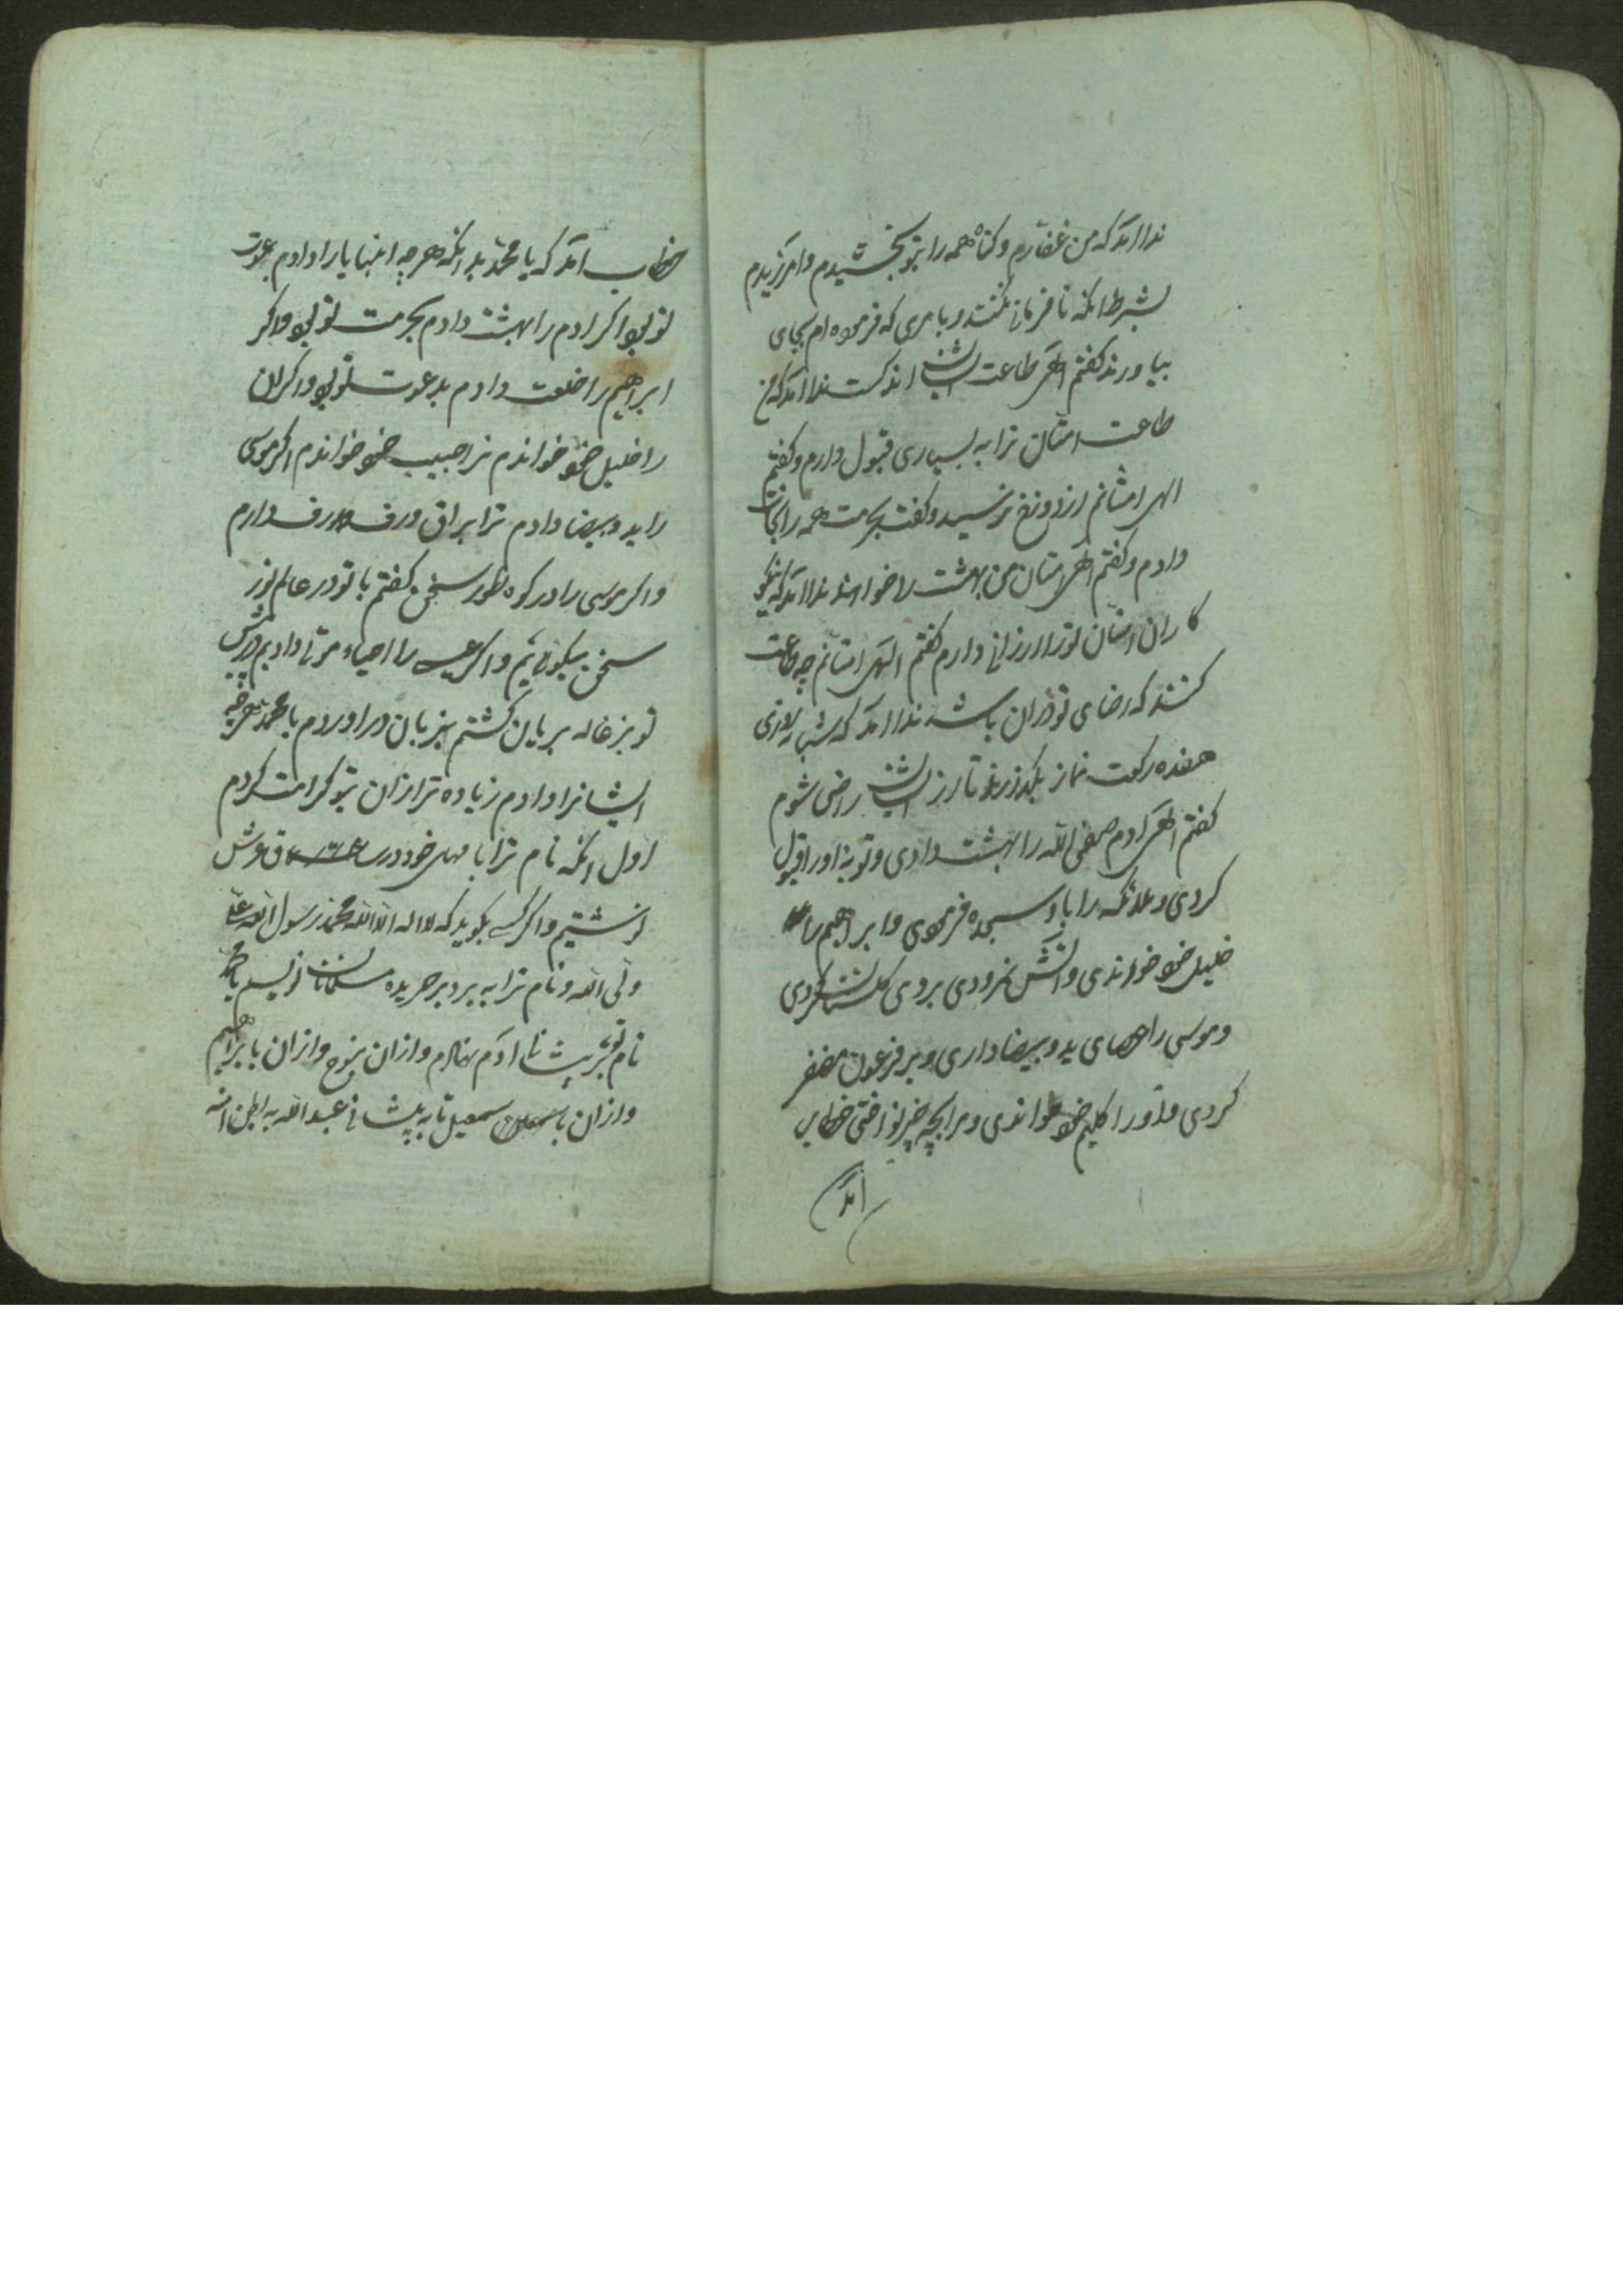 ندا امد که من غفارم و کناه همه را بتو بخشیدم و امرزیدم
بشرط انکه نافرمانی نکنند و بامری که فرموده ام بجای
بیاورند کفتم الهی طاعت ایشان اندکست ندا امد که من
طاعت امتان ترا به بسیاری قبول دارم و کفتم
الهی امتانم از دوزخ ترسید و کفت بحرمت همه را نجات
دادم و کفتم الهی امتان من بهشت را خواهند ندا امد که نیکو
کاران امتان تو را ارزانی دارم کفتم الهی امتانم چه طاعت
کنند که رضای تو دران باشد ندا امد که شبانه روزی
هفده رکعت نماز بکذارند تا از ایشان راضی شوم
کفتم الهی ادم صفی الله را بهشت دادی و توبه او را قبول
کردی و ملائکه را باو سجده فرمودی و ابراهیم را
خلیل خود خواندی و اتش نمرودی بروی کلستان کردی
و موسی را عصای ید و بیضا داری و بر فرعون مضفر
کردی و او را کلیم خود خواندی و مرا بچه چیز نواختی خطاب
امد
خطاب امد که یا محمد بدانکه هرچه انبیا را دادم بدعوت
تو بود اکر ادم را بهشت دادم بحرمت تو بود و اکر
ابراهیم را خلعت دادم بدعوت تو بود و اکر ان
را خلیل خود خواندم ترا حبیب خود خواندم اکر موسی
را ید و بیضا دادم ترا براق و رف رف دارم
و اکر موسی را در کوه طور سخن کفتم با تو در عالم نور
سخن میکویم و اکر عیسی را احیاء موتی دادیم در پیش
تو بزغاله بریان کشته بزبان در اوردم یا محمد هرچه
ایشانرا دادم زیاده تر ازان بتو کرامت کردم
اول انکه نام ترا با نام خود در ساق عرش
نوشتیم و اکر کسی بکوید که لا اله الا الله محمد رسول الله علی
ولی الله و نام ترا به برد بر جریده مسلمانان نویسم یا محمد
نام تو بر پیشانی ادم نهادم و ازان بنوح و ازان بابراهیم
و ازان باسمعیل تا به پیشانی عبدالله به بطن امنه